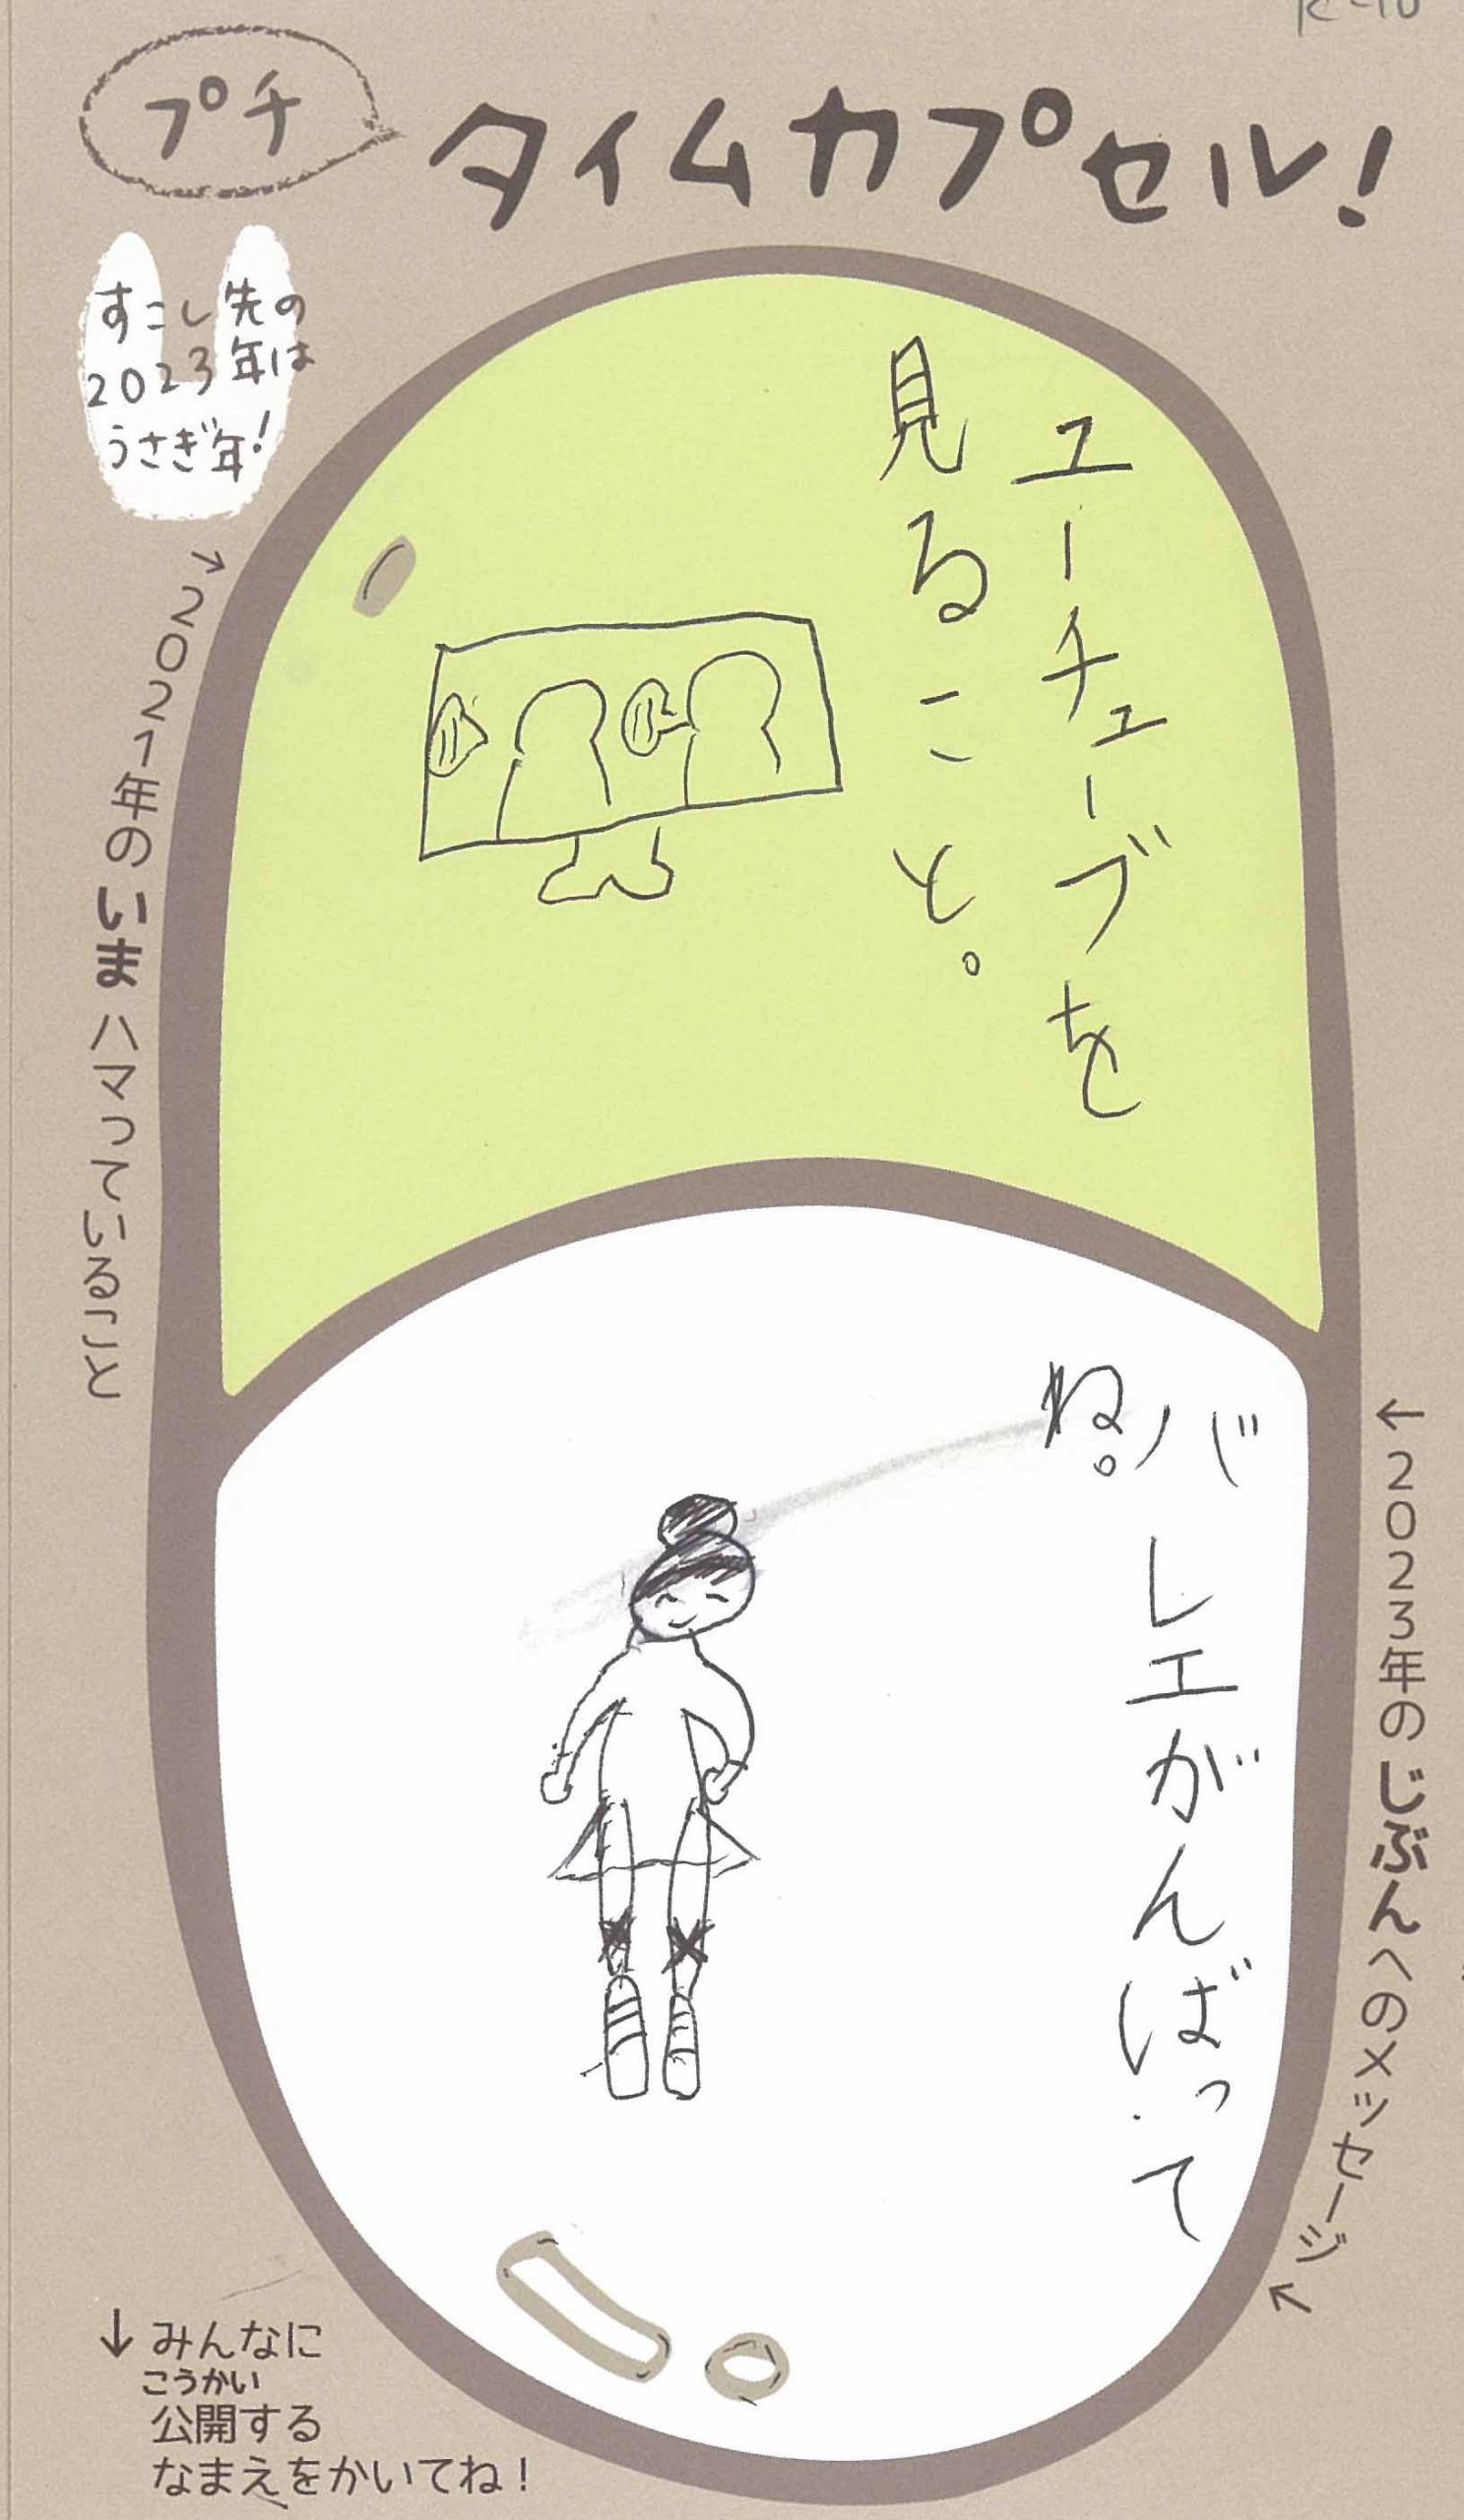 プチ
タイムカプセル!
すこし先の
2023年は
うさぎ年!
→2021年のいまハマっていること
ユーチューブを
見ること。
←2023年のじぶんへのメッセージ↖
バレエがんばって
ね。
↓みんなに
こうかい
公開する
なまえをかいてね!